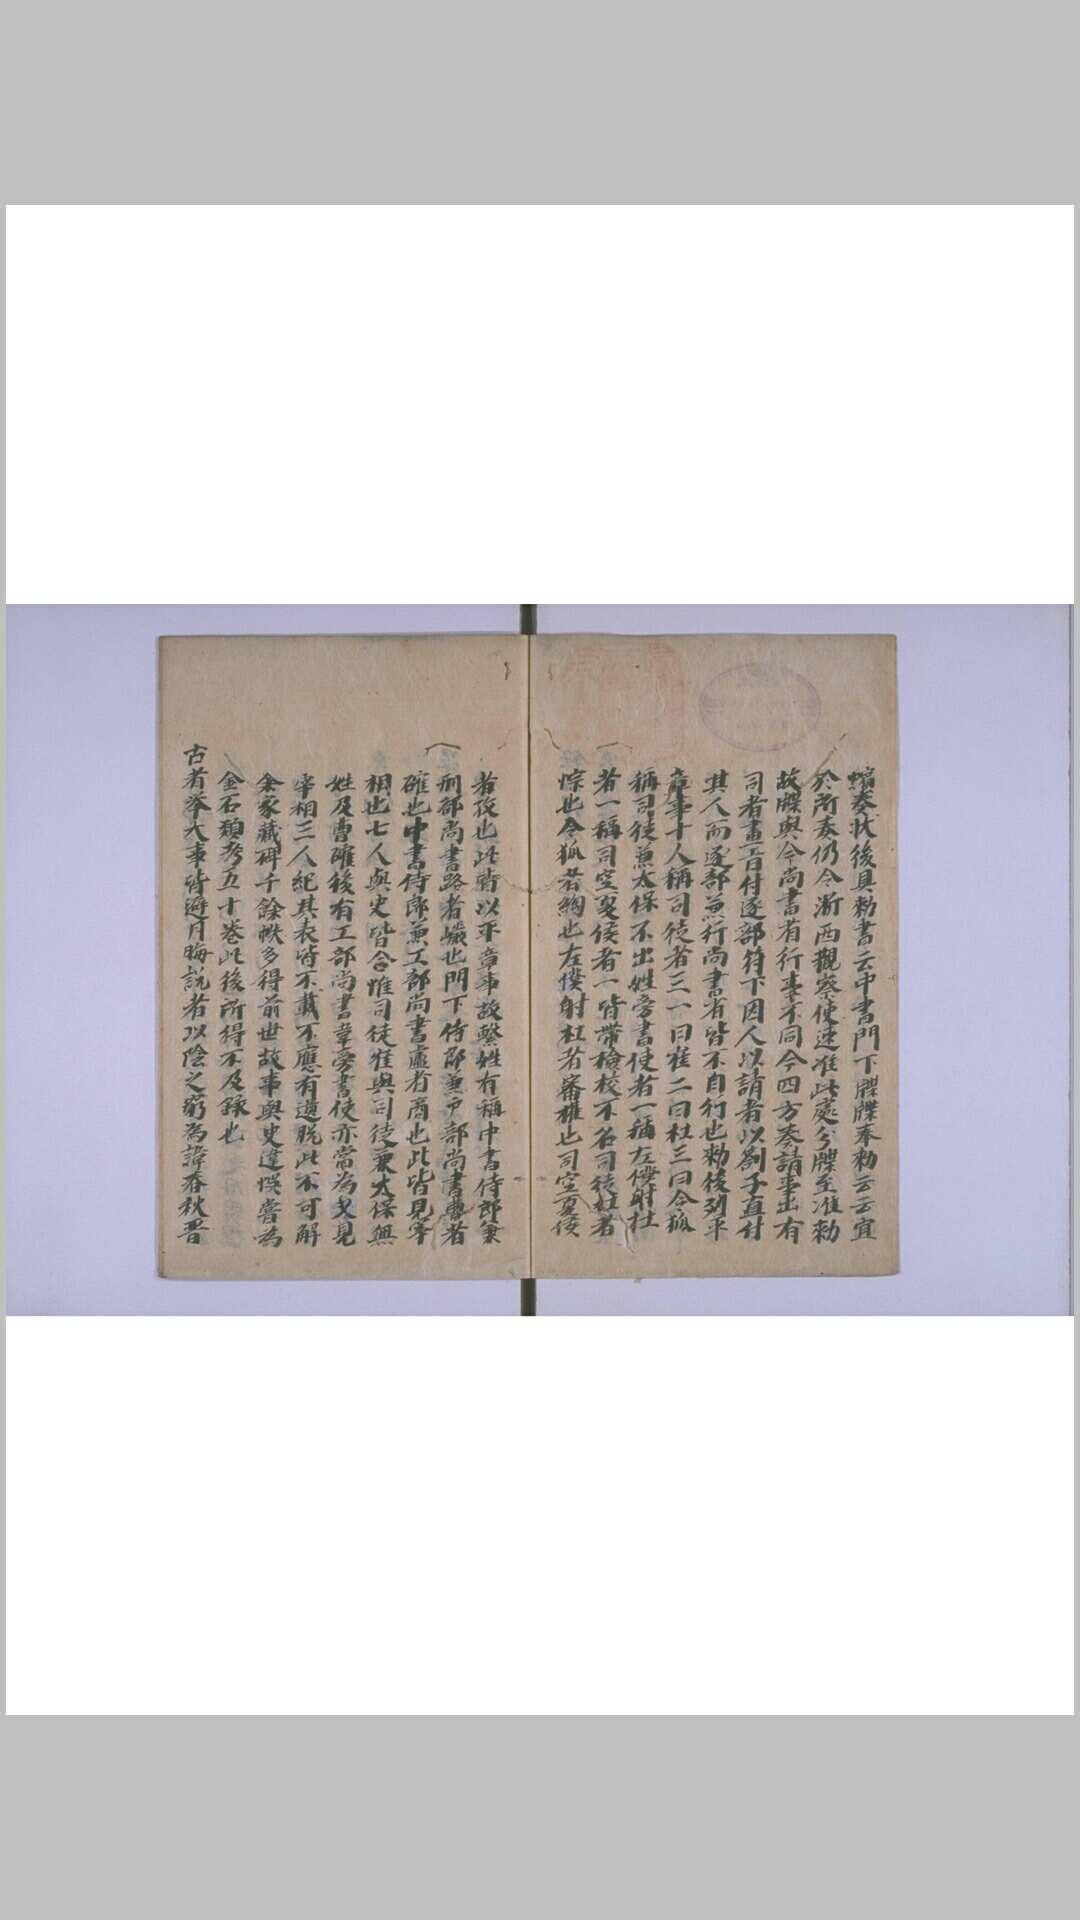 縮奏狀後具勅書云中書門下牒牒奉勅云云宜
於所奏仍令浙西觀察使速准此處分牒至准勅
故牒與今尚書省行事不同今四方奏請事出有
司者畫旨付逐部符下因人以請者以劄子直付
其人而逐部兼行尚書省皆不自行也勅後列平
章事十人稱司徒者三一曰崔二曰杜三曰令狐
稱司徒兼太保不出姓旁書使者一稱左僕射杜
者一稱司空夏侯者一皆帶檢校不名司徒杜者
悰也令狐者綯也左僕射杜者審權也司空夏侯
者孜也此皆以平章事故繫姓有稱中書侍郎兼
刑部尚書路者巖也門下侍郎兼戶部尚書曹者
確也中書侍郎兼工部尚書盧者商也此皆見宰
相也七人與史皆合惟司徒崔與司徒兼太保無
姓及曹確後有工部尚書韋旁書使亦當為見
宰相三人紀其表皆不載不應有遺脫此不可解
余家藏碑千餘帙多得前世故事與史違悞嘗為
金石類考五十卷此後所得不及錄也
古者舉大事皆避月晦說者以陰之窮為諱春秋晋